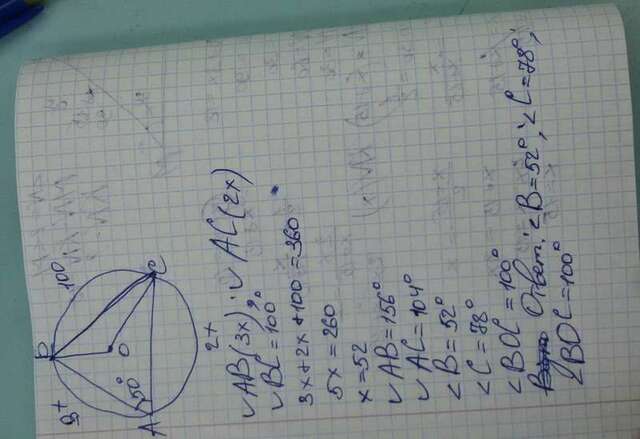 B
100
C
3x
O
50°
A
2x
◡AB(3x); ◡AC(2x)
◡BC=100°
3x+2x+100=360
5x=260
x=52
◡AB=156°
◡AC=104°
∠B=52°
∠C=78°
∠BOC=100°
Ответ: ∠B=52°, ∠C=78°,
∠BOC=100°